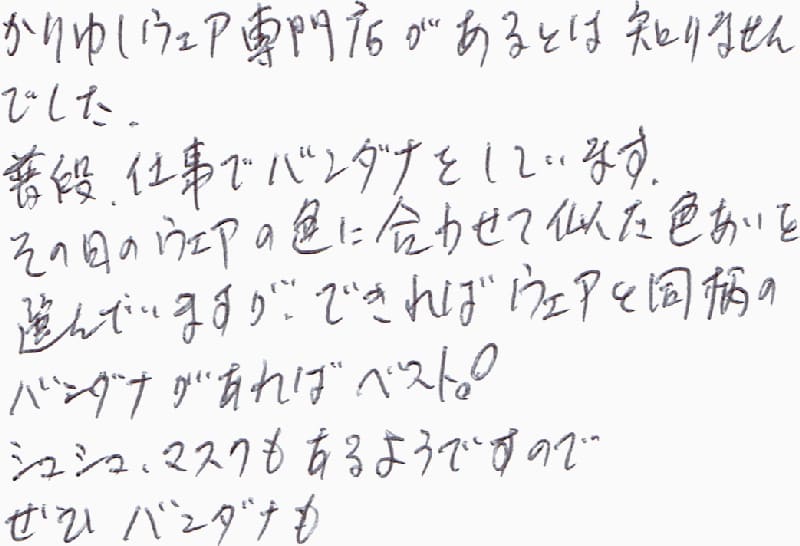 かりゆしウェア専門店があるとは知りません
でした.
普段.仕事でバンダナをしています.
その日のウェアの色に合わせて似た色あいを
選んでいますが.できればウェアと同柄の
バンダナがあればベスト。
シュシュ、マスクもあるようですので
ぜひバンダナも